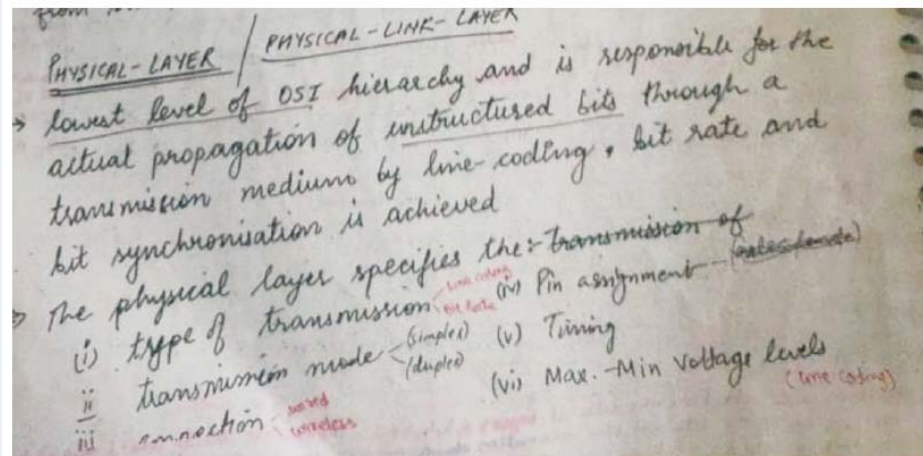 from
PHYSICAL-LAYER / PHYSICAL-LINK-LAYER
→ lowest level of OSI hierarchy and is responsible for the
actual propagation of unstructured bits through a
transmission medium by line-coding, bit rate and
bit synchronisation is achieved
→ The physical layer specifies the:- transmission of
(i) type of transmission line coding bit rate (iv) Pin assignment
ii transmission mode (simplex) (duplex) (v) Timing
iii connection wired wireless (vi) Max.-Min Voltage levels
(line coding)